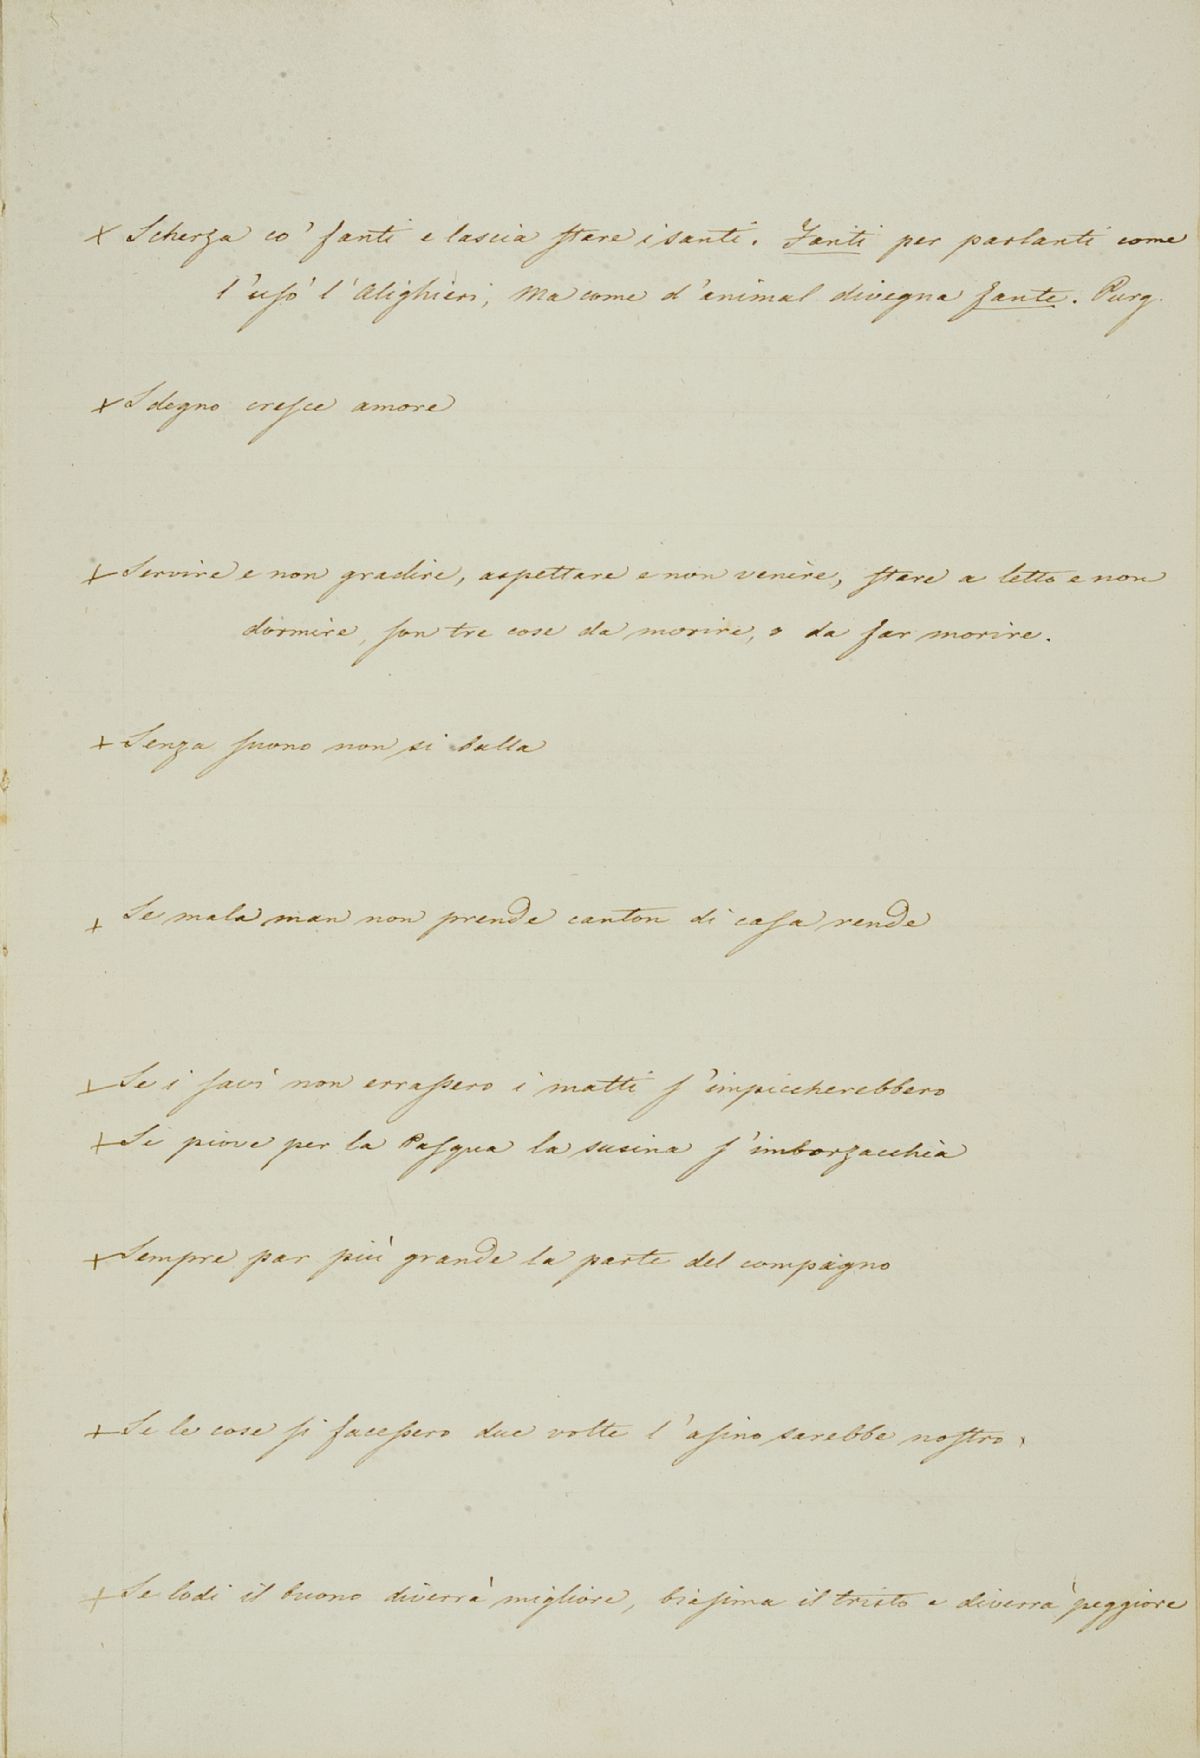 × Scherza co' fanti e lascia stare i santi. Fanti per parlanti come
l'usò l'Alighieri, Ma come d'animal divegna fante. Purg.
× Sdegno cresce amore
+ Servire e non gradire, aspettare e non venire, stare a letto e non
dormire, son tre cose da morire, o da far morire.
+ Senza suono non si balla
+ Se mala man non prende canton di casa rende
+ Se i savi non errassero i matti s'impiccherebbero
+ Se piove per la Pasqua la susina s'imborzacchia
+ Sempre par più grande la parte del compagno
+ Se le cose si facessero due volte l'asino sarebbe nostro.
+ Se lodi il buono diverrà migliore, biasima il tristo e diverrà peggiore